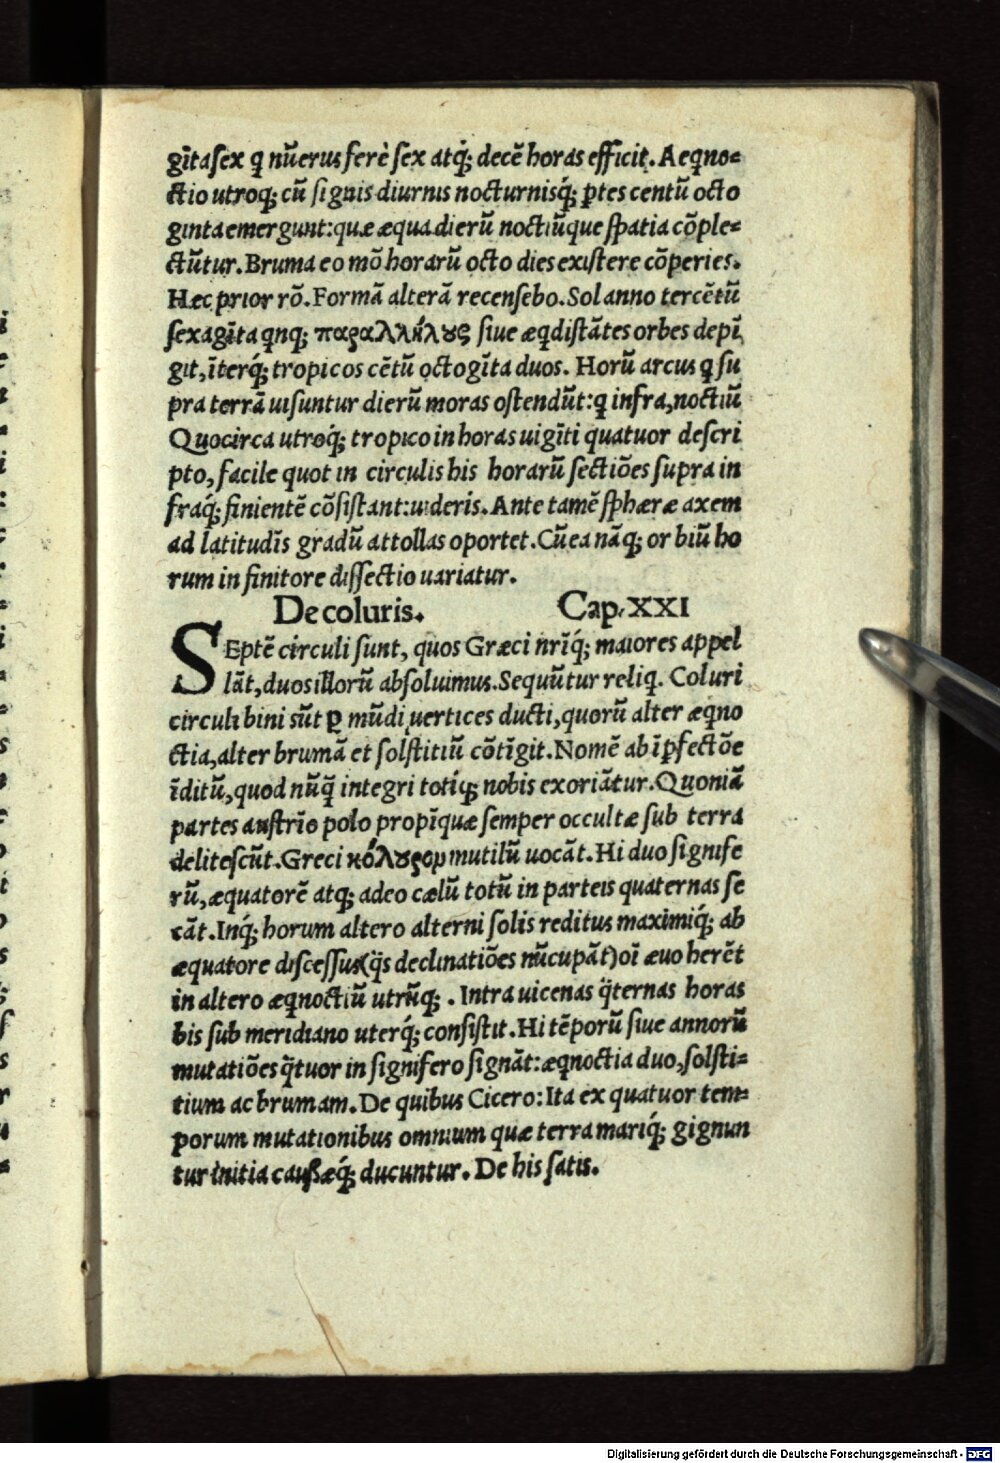 gīta sex q nūerus ferè sex atq́; decē horas efficit. Aeqno-
ctio utroq; cū signis diurnis nocturnisq́; ptes centū octo
ginta emergunt: quæ æqua dierū noctiūque spatia cōple-
ctūtur. Bruma eo mō horarū octo dies existere cōperies.
Hæc prior rō. Formā alterā recensebo. Sol anno tercētū
sexagīta qnq; παραλλήλȣς siue æqdistātes orbes depī
git, īterq́; tropicos cētū octogīta duos. Horū arcus q su
pra terrā uisuntur dierū moras ostendūt: q infra, noctiū
Quocirca utroq́; tropico in horas uigīti quatuor descri
pto, facile quot in circulis his horarū sectiōes supra in
fraq́; finientē cōsistant: uideris. Ante tamē sphæræ axem
ad latitudīs gradū attollas oportet. Cū ea nāq; orbiū ho
rum in finitore dissectio uariatur.
De coluris. Cap. XXI
SEptē circuli sunt, quos Græci nrīq́; maiores appel
lāt, duos illorū absoluimus. Sequūtur reliq. Coluri
circuli bini sūt ꝑ mūdi uertices ducti, quorū alter æqno
ctia, alter brumā et solstitiū cōtīgit. Nomē ab īpfectōe
īditū, quod nūq̄ integri totiq́; nobis exoriātur. Quoniā
partes austrīo polo propīquæ semper occultæ sub terra
delitescūt. Greci κόλȣρομ mutilū uocāt. Hi duo signife
rū, æquatorē atq; adeo cælū totū in parteis quaternas se
cāt. Inq́; horum altero alterni solis reditus maximiq́; ab
æquatore discessus (q̄s declinatiōes nūcupāt) oī æuo herēt
in altero æqnoctiū utrūq; . Intra uicenas q̄ternas horas
bis sub meridiano uterq́; consistit. Hi tēporū siue annorū
mutatiōes q̄tuor in signifero signāt: æqnoctia duo, solsti-
tium ac brumam. De quibus Cicero: Ita ex quatuor tem-
porum mutationibus omnium quæ terra mariq́; gignun
tur initia caußæq́; ducuntur. De his satis.
Digitalisierung gefördert durch die Deutsche Forschungsgemeinschaft - DFG